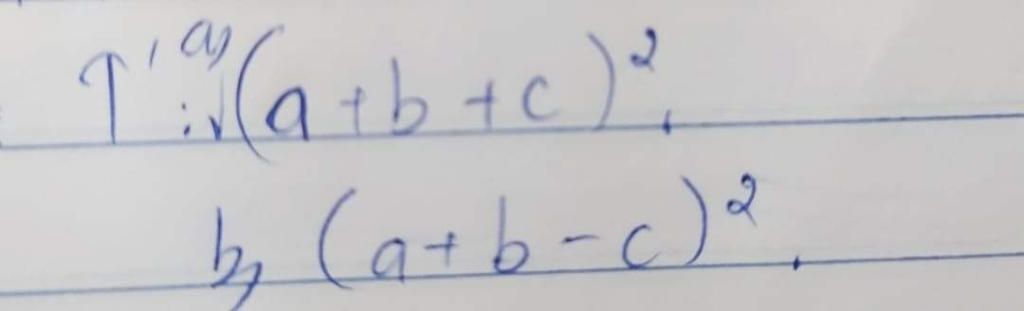 a, (a+b+c)².
b, (a+b-c)².